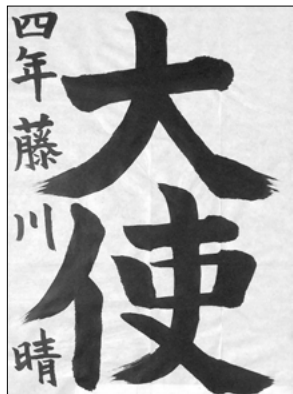 大使
四年 藤川 晴